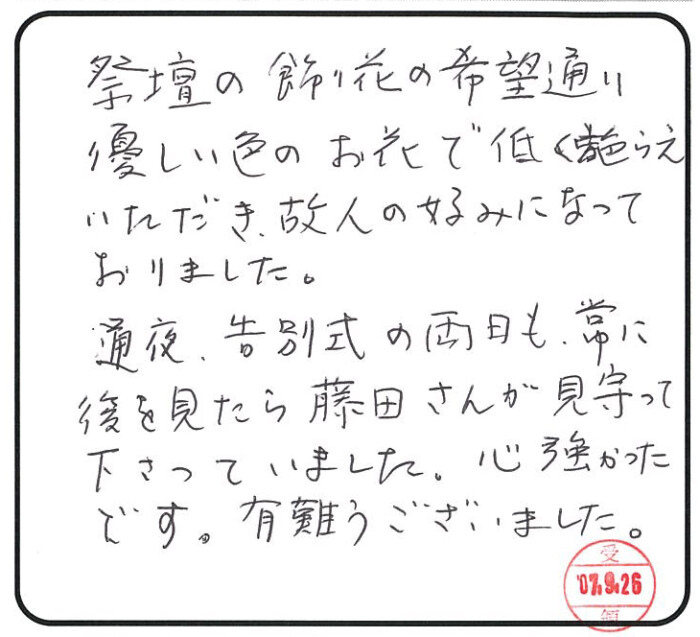 祭壇の飾り花の希望通り
優しい色のお花で低く らえ
いただき、故人の好みになって
おりました。
通夜、告別式の両日も、常に
後を見たら藤田さんが見守って
下さっていました。心強かった
です。有難うございました。
受
'07.9.26
領